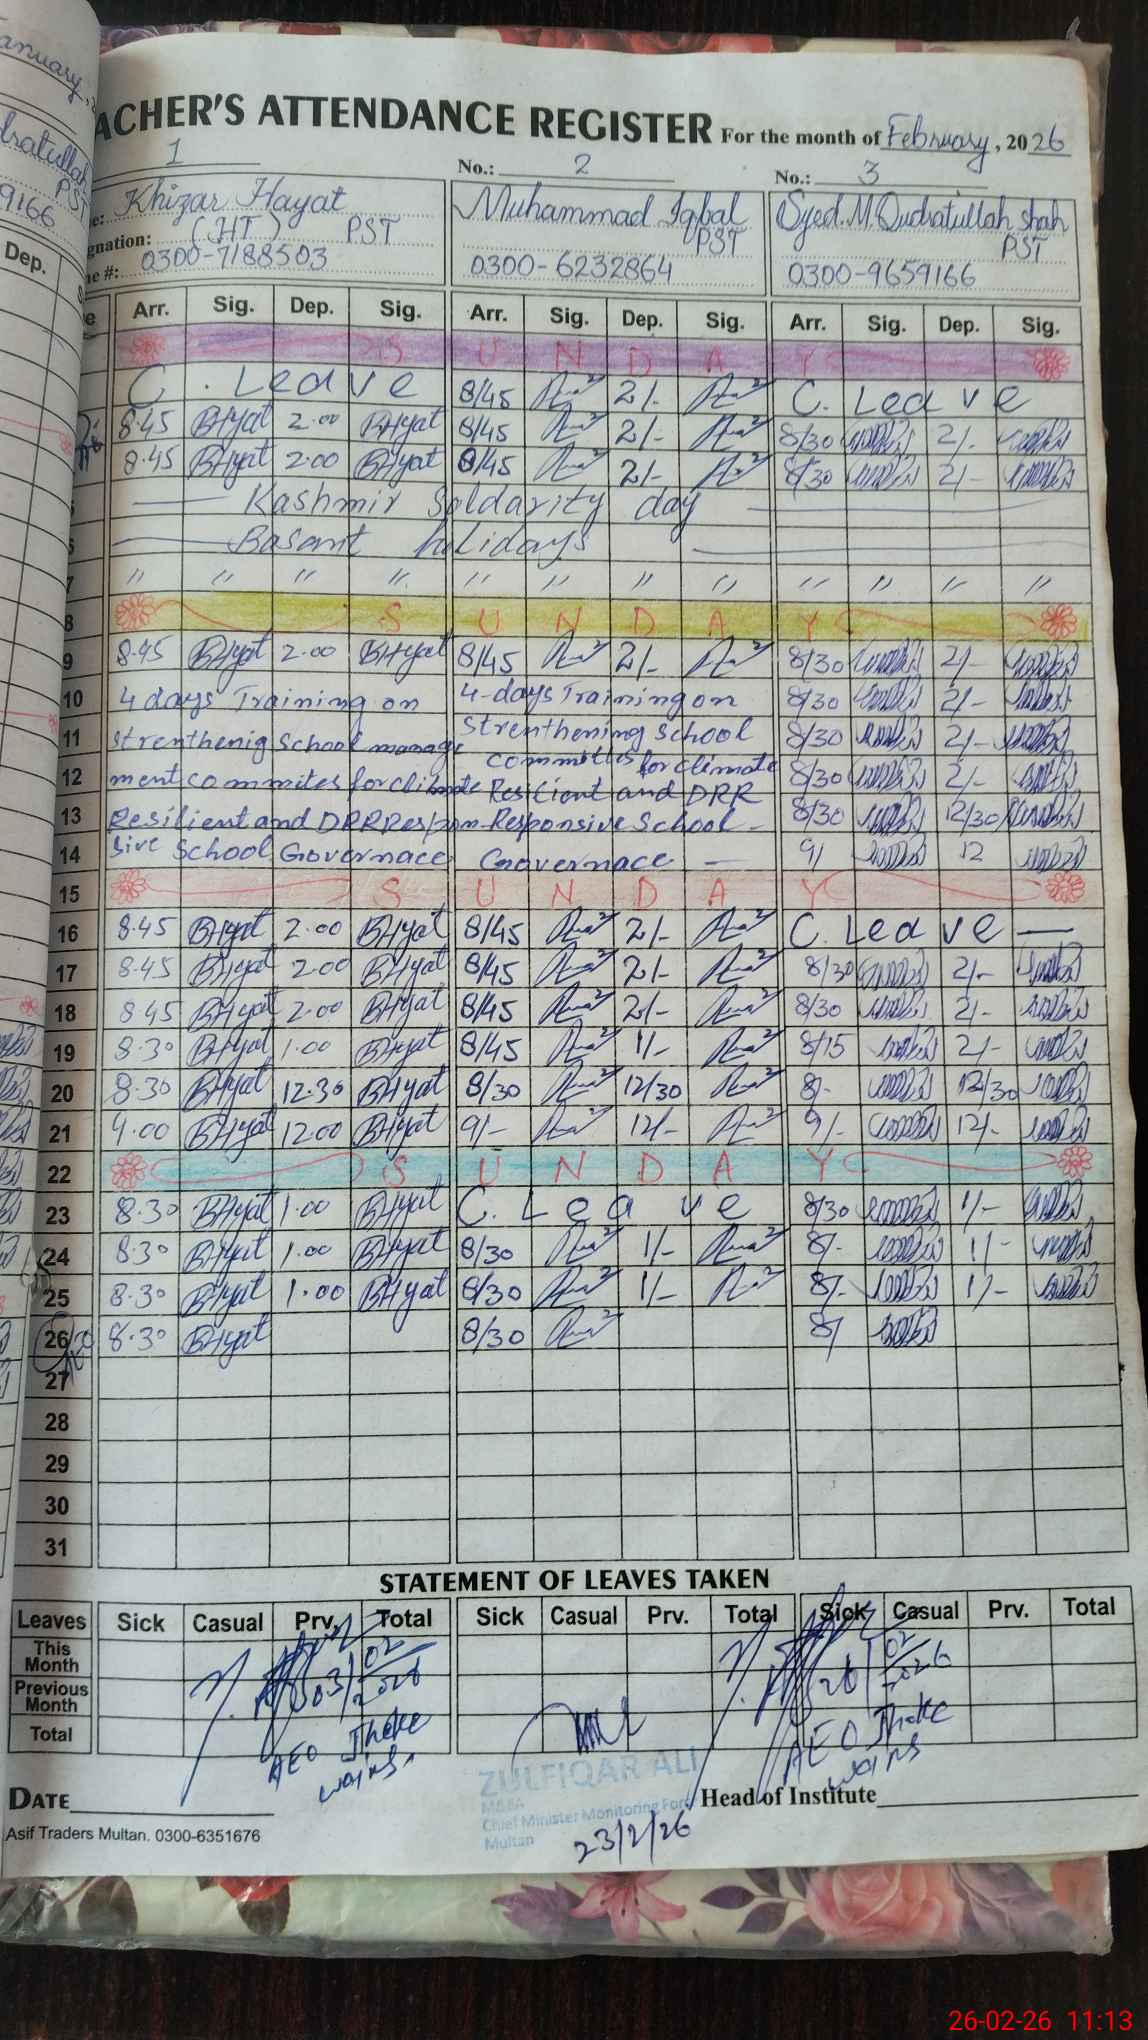 anuary,
dratullah
PST
9166
Dep.
ACHER'S ATTENDANCE REGISTER For the month of February, 2026
1 No.: 2 No.: 3
e: Khizar Hayat Muhammad Iqbal Syed.M.Qudratullah shah
gnation: (HT) PST PST PST
ne #: 0300-7188503 0300-6232864 0300-9659166
e Arr. Sig. Dep. Sig. Arr. Sig. Dep. Sig. Arr. Sig. Dep. Sig.
S U N D A Y
C. Leave 8/45 2/- C. Leave
8.45 BHyat 2.00 BHyat 8/45 2/- 8/30 2/-
8.45 BHyat 2.00 BHyat 8/45 2/- 8/30 2/-
Kashmir Soldarity day
Basant holidays
7 " " " " " " " " " " " "
8 S U N D A Y
9 8.45 BHyat 2.00 BHyat 8/45 2/- 8/30 2/-
10 4 days Training on 4-days Training on 8/30 2/-
11 Strenthenig School manage Strenthening School 8/30 2/-
12 ment commites for climate committies for climate 8/30 2/-
Resilient and DRR
13 Resilient and DRR Respon- Responsive School- 8/30 12/30
14 sive School Governace Governace - 9/ 12
15 S U N D A Y
16 8.45 BHyat 2.00 BHyat 8/45 2/- C. Leave -
17 8.45 BHyat 2.00 BHyat 8/45 2/- 8/30 2/-
18 8.45 BHyat 2.00 BHyat 8/45 2/- 8/30 2/-
19 8.30 BHyat 1.00 BHyat 8/45 1/- 8/15 2/-
20 8.30 BHyat 12.30 BHyat 8/30 12/30 8/- 12/30
21 9.00 BHyat 12.00 BHyat 9/- 12/- 9/- 12/-
22 S U N D A Y
23 8.30 BHyat 1.00 BHyat C. Leave 8/30 1/-
24 8.30 BHyat 1.00 BHyat 8/30 1/- 8/- 1/-
25 8.30 BHyat 1.00 BHyat 8/30 1/- 8/- 1/-
26 8.30 BHyat 8/30 8/
27
28
29
30
31
STATEMENT OF LEAVES TAKEN
Leaves Sick Casual Prv. Total Sick Casual Prv. Total Sick Casual Prv. Total
This Month
Previous Month
Total
03/02/2026
26/02/2026
AEO
AEO
ZULFIQAR ALI
M&EA
Chief Minister Monitoring Force
Multan
23/2/26
DATE Head of Institute
Asif Traders Multan. 0300-6351676
26-02-26 11:13